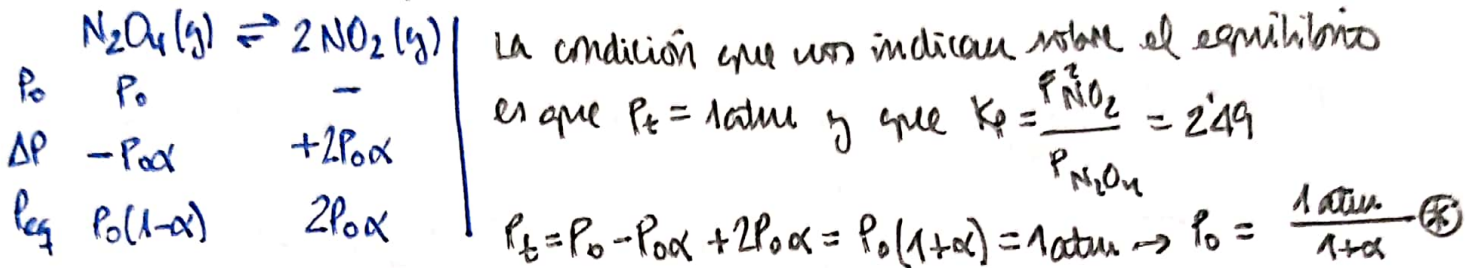 N₂O₄(g) ⇌ 2NO₂(g)
P₀ P₀ –
ΔP -P₀α +2P₀α
Peq P₀(1-α) 2P₀α
La condición que nos indican sobre el equilibrio
es que Pt = 1atm y que Kp = P²NO₂ / PN₂O₄ = 2'49
Pt = P₀ - P₀α + 2P₀α = P₀(1+α) = 1atm → P₀ = 1 atm / 1+α ⊛